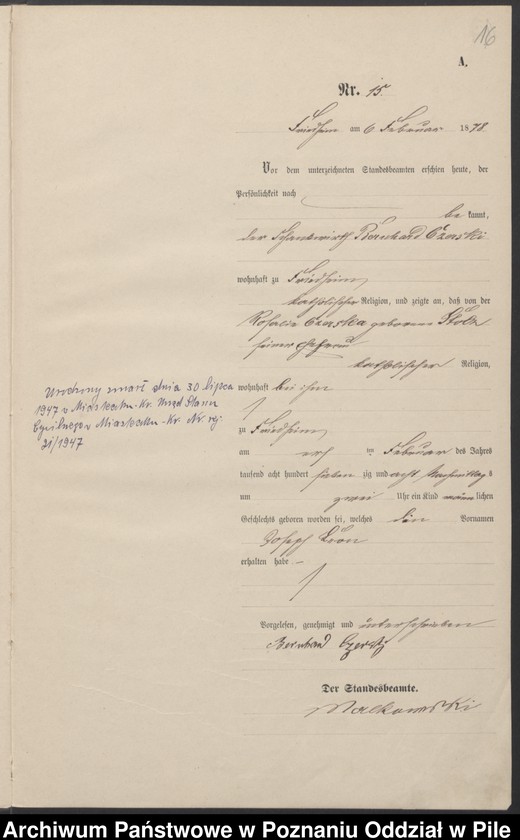 16
A.
Nr. 15.
Friedheim am 6 Februar 1878.
Vor dem unterzeichneten Standesbeamten erschien heute, der
Persönlichkeit nach
be kannt,
der Schankwirth Bernhard Czarski
wohnhaft zu Friedheim
katholischer Religion, und zeigte an, daß von der
Rosalie Czarska geborenen
seiner Ehefrau
katholischer Religion,
wohnhaft bei ihm
zu Friedheim
am ten Februar des Jahres
tausend acht hundert sieben zig und acht Nachmittags
um zwei Uhr ein Kind männ lichen
Geschlechts geboren worden sei, welches den Vornamen
Joseph Leon
erhalten habe –
Vorgelesen, genehmigt und unterschrieben
Bernhard
Der Standesbeamte.
Malkowski
Urodzony zmarł dnia 30 lipca
1947 w Miasteczku-Kr. Urząd Stanu
Cywilnego w Miasteczku-Kr. Nr rej.
21/1947
Archiwum Państwowe w Poznaniu Oddział w Pile